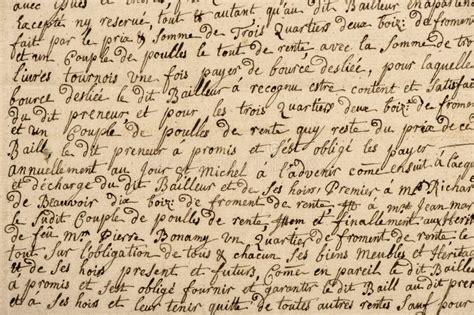 avec
excepté ny reserve, tout et autant qu'au dit Bailleur en
fait par le prix & Somme de Trois Quartiers deux boiz: de froment
et un Couple de poulles le tout de rente, avec la Somme de
livres tournois une fois payer de bource desliée, pour laquelle
bource desliée le dit Bailleur a recognu estre content et Satisfait
du dit preneur, et pour les trois Quartiers deux boiz: de froment
et un Couple de poulles de rente quy reste du prix de ce
Baill, le dit preneur à promis et s'est obligé les payer
annuellement au Jour St Michel à l'advenir come ensuit à l'acquit
et décharge du dit Bailleur et de Ses hoirs Premier à Mr Richard
de Beauvoir dix boiz: de froment de rente, Item à Mr Jean
le Sudit Couple de poulles de rente, Item et finallement aux
de feû Mr Pierre Bonamy un Quartier de froment de rente le
tout Sur l'obligation de tous & chacun Ses biens Meubles et Heritages
et de Ses hoirs present et futurs, Come en pareil le dit Bailleur
à promis et S'est obligé fournir et garantir le dit Baill au dit preneur
et à Ses hoirs et leur tenir quitte de toutes autres rentes Sauf pour